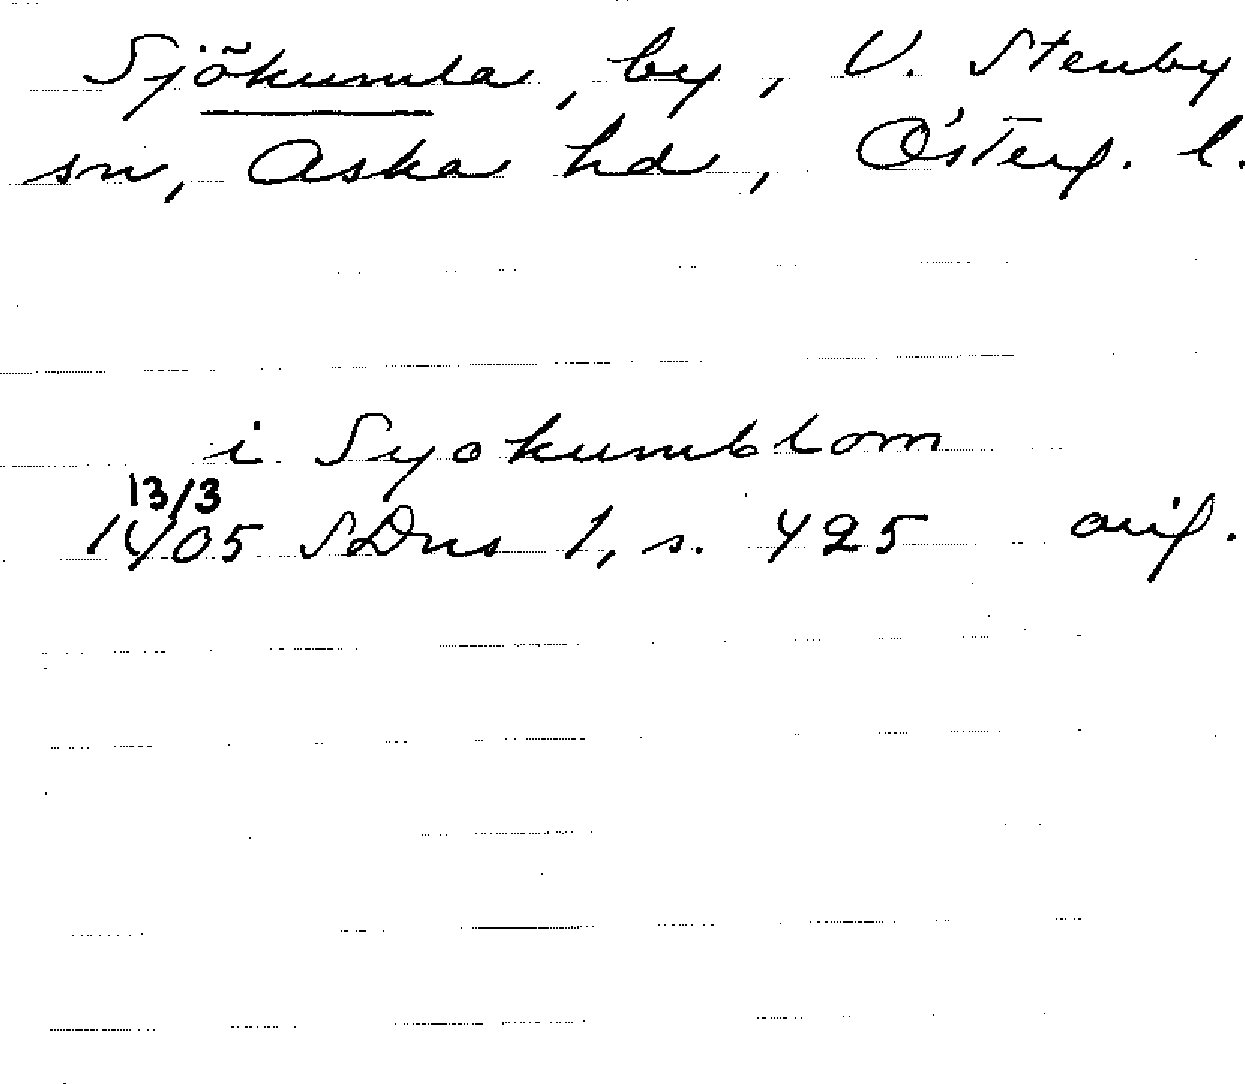 Sjökumla, by, V. Stenby
sn, Aska hd, Österg. l.
i Syokumblom
13/3
1405 SDns 1, s. 425 orig.